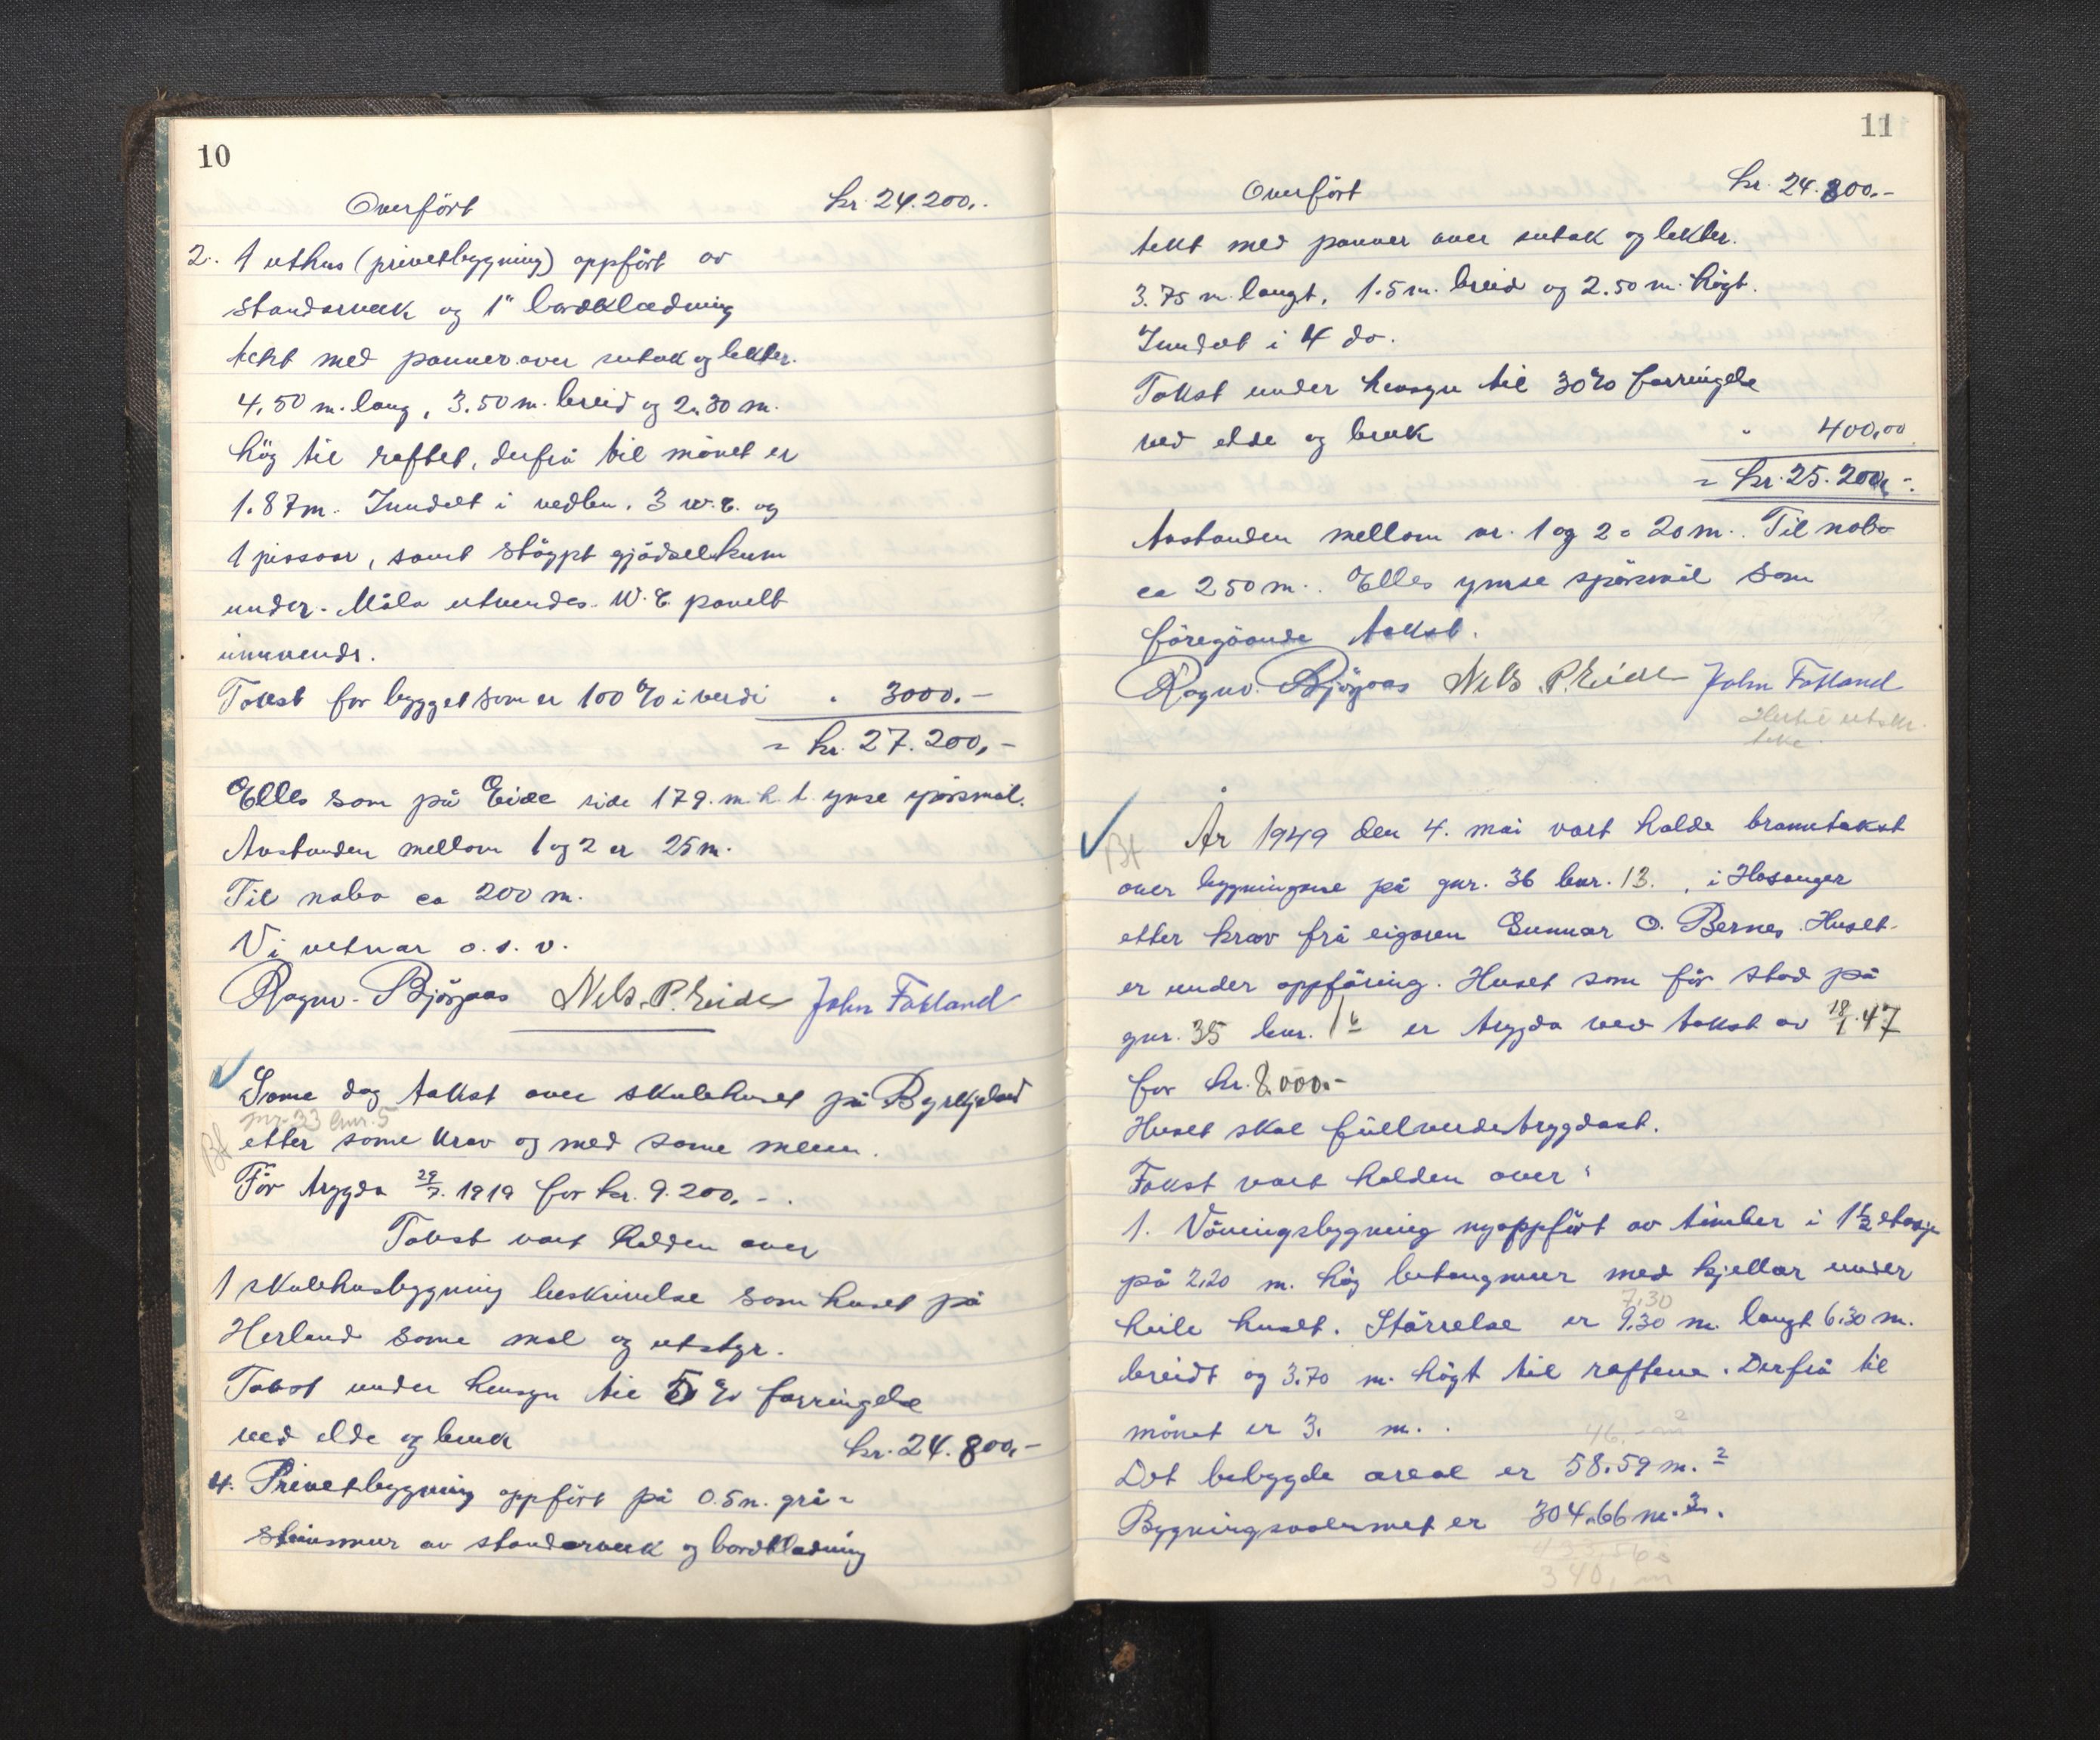 10
Overført kr. 24.200,-
2. 1 uthus (privetbygning) oppført av
standarverk og 1" bordklædning
tekt med panner over sutak og lekter.
4,50 m. lang, 3,50 m. breid og 2,30 m.
høg til raftet, derfrå til mönet er
1.87 m. Inndelt i vedbu, 3 W.C. og
1 pissoar, samt støypt gjødselkum
under. Måla utvendes. W.C. panelt
innvends.
Takst for bygget som er 100 % i verdi " 3000.-
= kr. 27.200,-
Elles som på Eide side 179. m.h.t. ymse spörsmål.
Avstanden mellom 1 og 2 er 25 m.
Til nabo ca 200 m.
Vi vetnar o.s.v.
Ragnv. Bjørgaas Nils P. Eide John Fotland
Same dag takst over skulehuset på Byrkjeland
gnr. 33 bnr. 5
Bf etter same krav og med same menn.
Før trygda 29/7. 1919 for kr. 9.200,-.
Takst vart halden over
1 skulehusbygning beskrivelse som huset på
Herland same mål og utstyr.
Takst under hensyn til 5 % forringelse
ved elde og bruk kr. 24.800,-
4. Privetbygning oppført på 0.5 m. grå-
steinsmur av standarverk og bordkladning
11
Overført kr. 24.800.-
tekt med panner over sutak og lekter.
3.75 m. langt, 1.5 m. breid og 2.50 m. högt.
Inndelt i 4 do.
Takst under hensyn til 30 % forringelse
ved elde og bruk " 400,00
= kr. 25.200,-.
Avstanden mellom nr. 1 og 2 = 20 m. Til nabo
ca 250 m. Elles ymse spörsmål som
föregåande takst.
Ragnv. Bjørgaas Nils P. Eide John Fotland
Hertil utskr.
teke.
År 1949 den 4. mai vart halde branntakst
Bf
over bygningane på gnr. 36 bnr. 13. , i Hosanger
etter krav frå eigaren Gunnar O. Bernes. Huset
er under oppföring. Huset som för stod på
gnr. 35 bnr. 1 b er trygda ved takst av 18/1.47
for kr. 8.000.-
Huset skal fullverdetrygdast.
Takst vart halden over:
1. Våningsbygning nyoppfört av timber i 1 1/2 etasje
på 2,20 m. høg betongmur med kjellar under
7,30
heile huset. Störrelse er 9,30 m. langt 6,30 m.
breidt og 3.70 m. högt til raftene. Derfrå til
mönet er 3, m. .
46,- m²
Det bebygde areal er 58.59 m.²
Bygningsvolumet er 304,66 m.³.
340, m